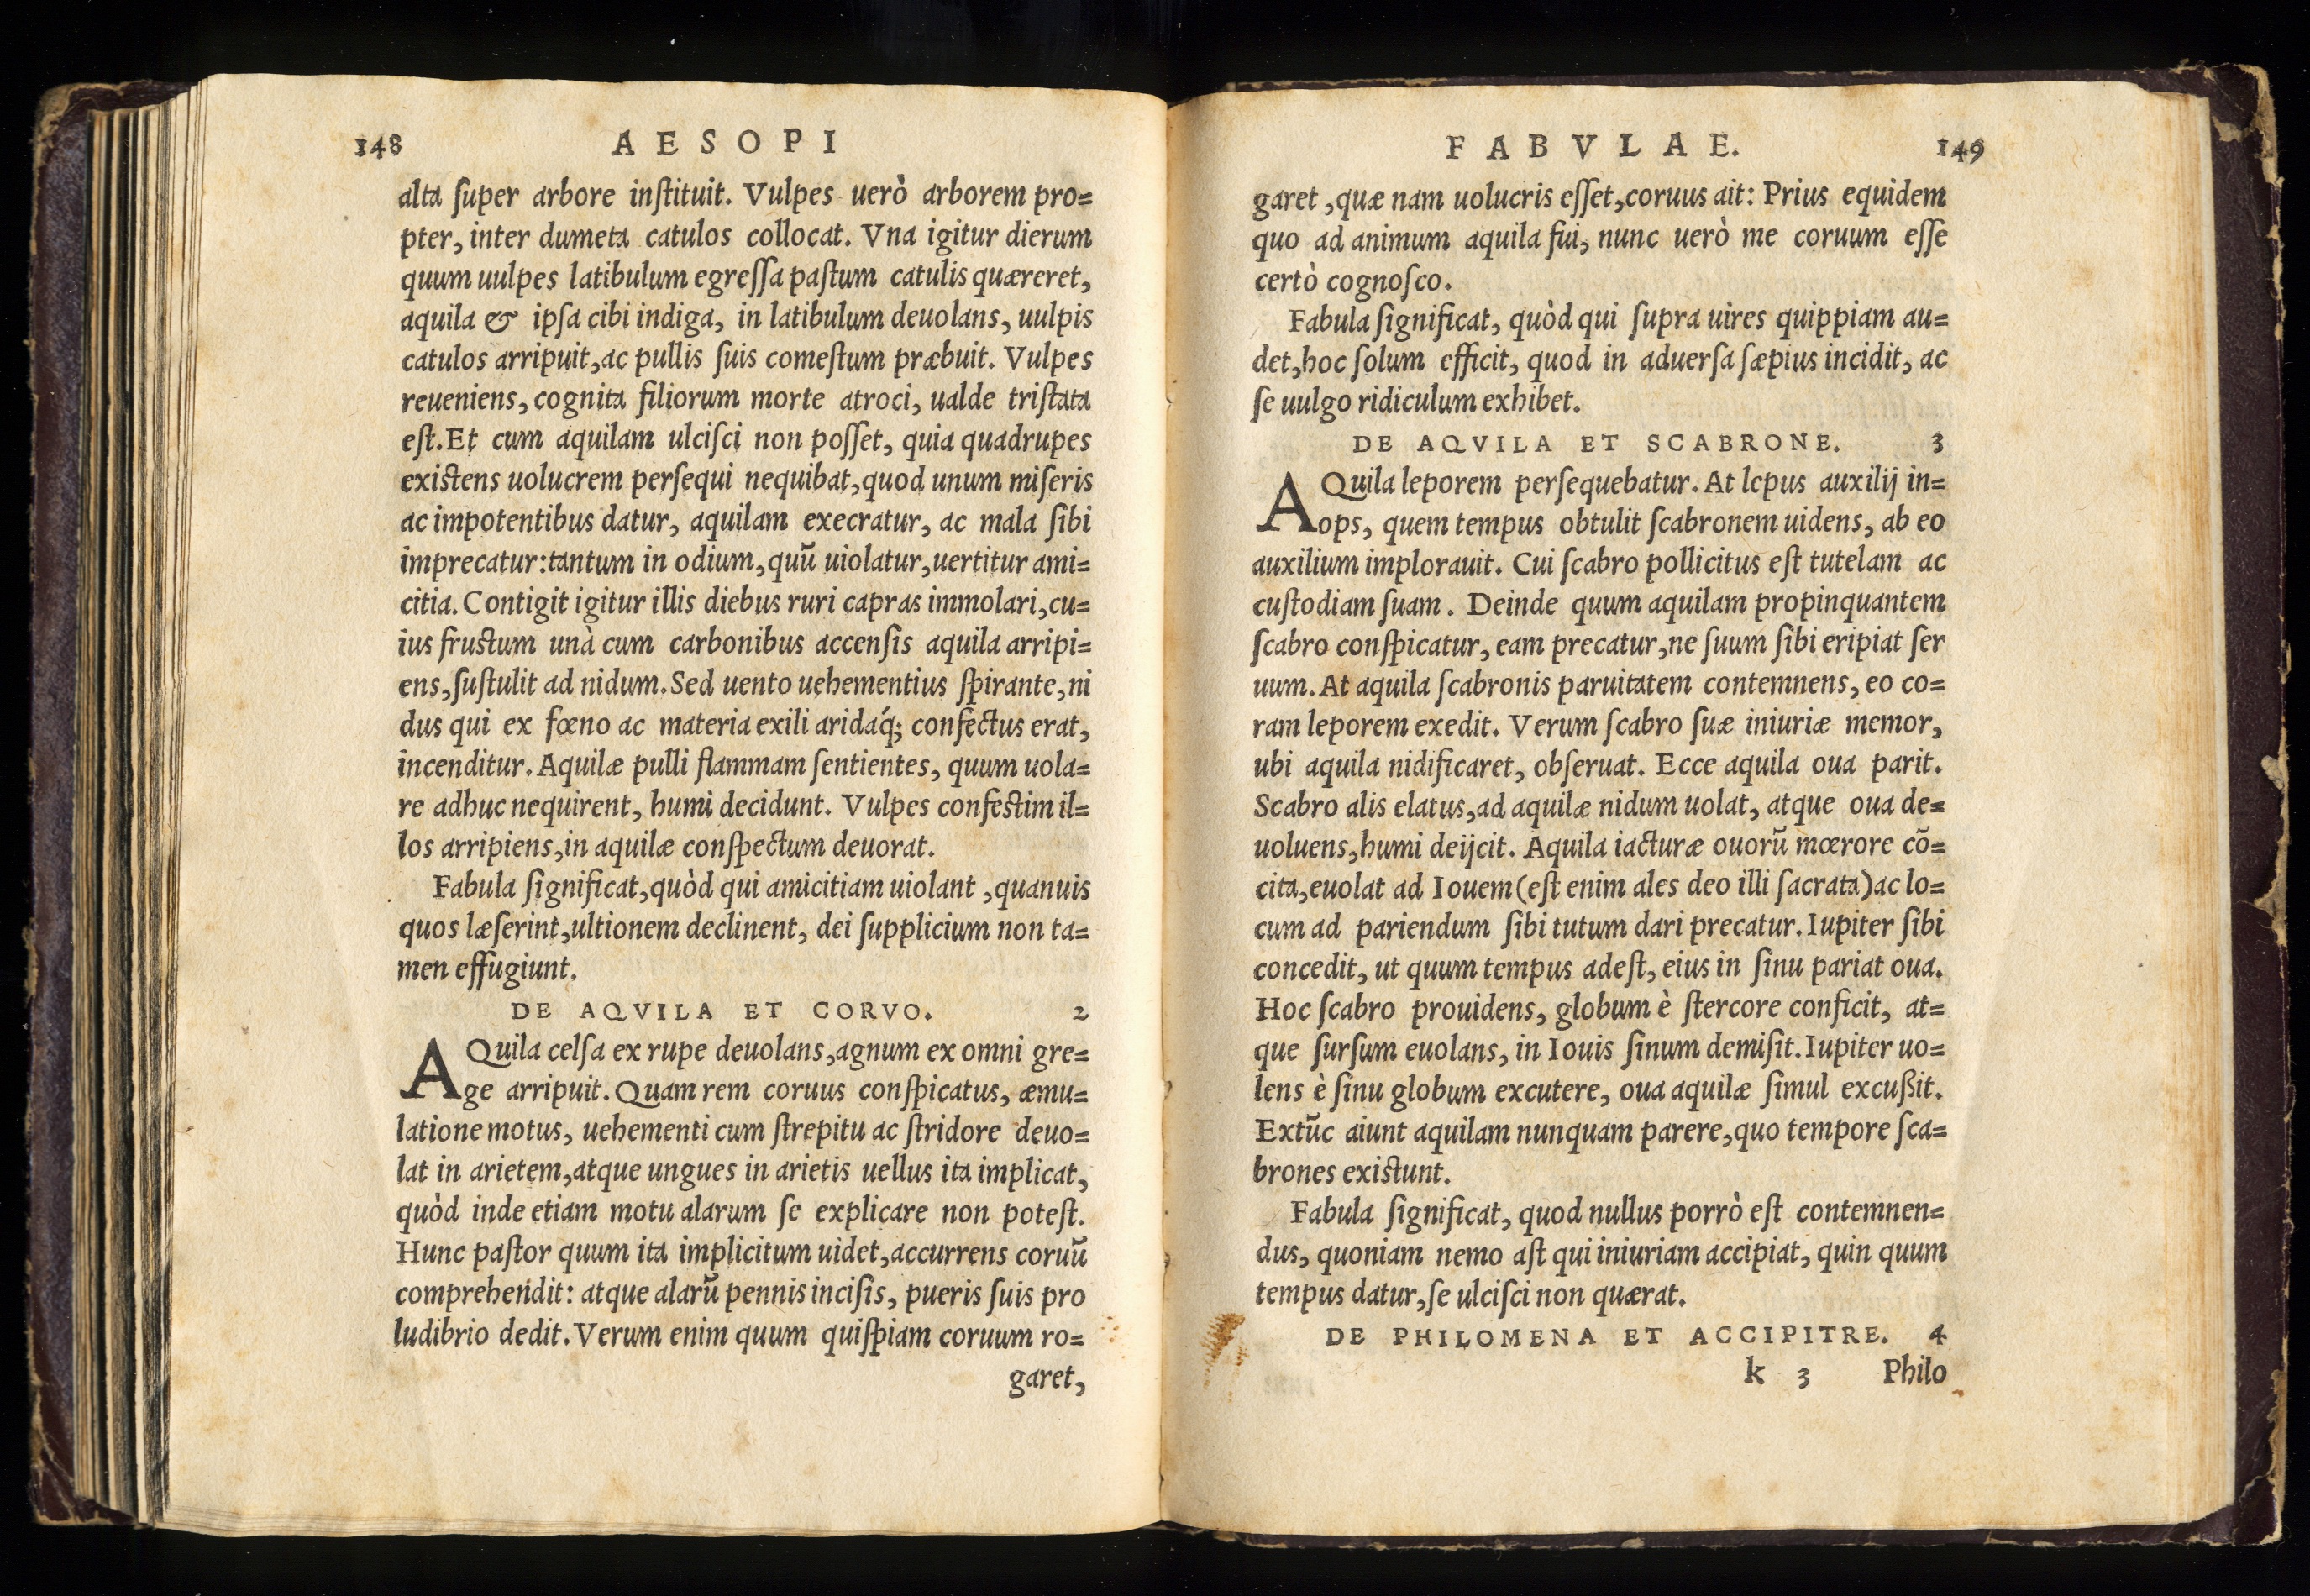 148 AESOPI
alta ſuper arbore inſtituit. Vulpes uerò arborem pro=
pter, inter dumeta catulos collocat. Vna igitur dierum
quum uulpes latibulum egreſſa paſtum catulis quæreret,
aquila & ipſa cibi indiga, in latibulum deuolans, uulpis
catulos arripuit, ac pullis ſuis comeſtum præbuit. Vulpes
reueniens, cognita filiorum morte atroci, ualde triſtata
eſt. Et cum aquilam ulciſci non poſſet, quia quadrupes
exiſtens uolucrem perſequi nequibat, quod unum miſeris
ac impotentibus datur, aquilam execratur, ac mala ſibi
imprecatur: tantum in odium, quũ uiolatur, uertitur ami=
citia. Contigit igitur illis diebus ruri capras immolari, cu=
ius fruſtum unà cum carbonibus accenſis aquila arripi=
ens, ſuſtulit ad nidum. Sed uento uehementius ſpirante, ni
dus qui ex fœno ac materia exili aridáq; confectus erat,
incenditur. Aquilæ pulli flammam ſentientes, quum uola=
re adhuc nequirent, humi decidunt. Vulpes confeſtim il=
los arripiens, in aquilæ conſpectum deuorat.
Fabula ſignificat, quòd qui amicitiam uiolant, quanuis
quos læſerint, ultionem declinent, dei ſupplicium non ta=
men effugiunt.
DE AQVILA ET CORVO. 2
AQuila celſa ex rupe deuolans, agnum ex omni gre=
ge arripuit. Quam rem coruus conſpicatus, æmu=
latione motus, uehementi cum ſtrepitu ac ſtridore deuo=
lat in arietem, atque ungues in arietis uellus ita implicat,
quòd inde etiam motu alarum ſe explicare non poteſt.
Hunc paſtor quum ita implicitum uidet, accurrens coruũ
comprehendit: atque alarũ pennis inciſis, pueris ſuis pro
ludibrio dedit. Verum enim quum quiſpiam coruum ro=
garet,
FABVLAE. 149
garet, quæ nam uolucris eſſet, coruus ait: Prius equidem
quo ad animum aquila fui, nunc uerò me coruum eſſe
certò cognoſco.
Fabula ſignificat, quòd qui ſupra uires quippiam au=
det, hoc ſolum efficit, quod in aduerſa ſæpius incidit, ac
ſe uulgo ridiculum exhibet.
DE AQVILA ET SCABRONE. 3
AQuila leporem perſequebatur. At lepus auxilij in=
ops, quem tempus obtulit ſcabronem uidens, ab eo
auxilium implorauit. Cui ſcabro pollicitus eſt tutelam ac
cuſtodiam ſuam. Deinde quum aquilam propinquantem
ſcabro conſpicatur, eam precatur, ne ſuum ſibi eripiat ſer
uum. At aquila ſcabronis paruitatem contemnens, eo co=
ram leporem exedit. Verum ſcabro ſuæ iniuriæ memor,
ubi aquila nidificaret, obſeruat. Ecce aquila oua parit.
Scabro alis elatus, ad aquilæ nidum uolat, atque oua de=
uoluens, humi deijcit. Aquila iacturæ ouorũ mœrore cõ=
cita, euolat ad Iouem (eſt enim ales deo illi ſacrata) ac lo=
cum ad pariendum ſibi tutum dari precatur. Iupiter ſibi
concedit, ut quum tempus adeſt, eius in ſinu pariat oua.
Hoc ſcabro prouidens, globum è ſtercore conficit, at=
que ſurſum euolans, in Iouis ſinum demiſit. Iupiter uo=
lens è ſinu globum excutere, oua aquilæ ſimul excußit.
Extũc aiunt aquilam nunquam parere, quo tempore ſca=
brones exiſtunt.
Fabula ſignificat, quod nullus porrò eſt contemnen=
dus, quoniam nemo aſt qui iniuriam accipiat, quin quum
tempus datur, ſe ulciſci non quærat.
DE PHILOMENA ET ACCIPITRE. 4
k 3 Philo